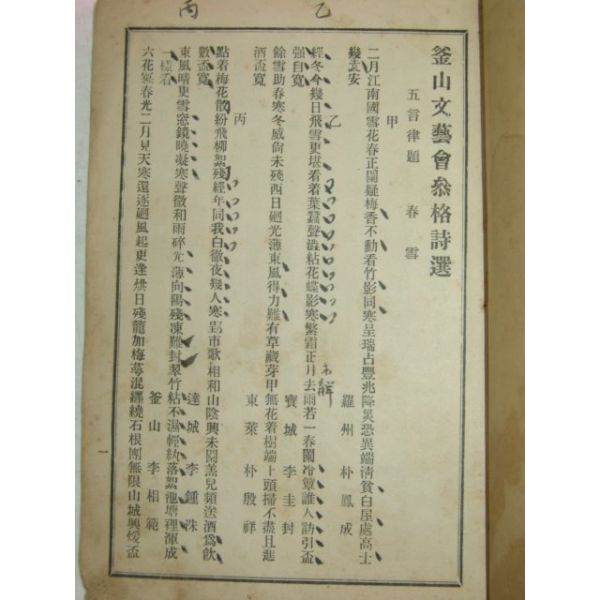 丙 乙
釜山文藝會叅格詩選
五言律題 春雪
甲
二月江南國雪花春正闌疑梅香不動看竹影同寒呈瑞占豐兆降災恐異端淸貧白屋處高士
幾 安
羅州 朴鳳成
乙
經冬今幾日飛雪更堪看着葉蠶聲 粘花蝶影寒繁霜正月去雨若一春闌冷 誰人訪引盃
强自寬
寶城 李圭封
餘雪助春寒冬威尙未殘西日廻光薄東風得力難有草藏芽甲無花着樹端上頭掃不盡且進
酒盃寬
東萊 朴殷祥
丙
點着梅花散紛飛柳絮殘經年同我白徹夜幾人寒 市歌相和山陰興未闌羔兒頻送酒爲飮
數盃寬
達城 李鍾洙
東風晴更雪窓鏡曉凝寒聲微和雨碎光薄向陽殘凍難封翠竹粘不濕輕紈落絮池塘裡渾成
一樣看
釜山 李相範
六花 春光二月見天寒還逐廻風起更逢烘日殘龍加梅萼混 繞石根團無限山城興煖盃
一